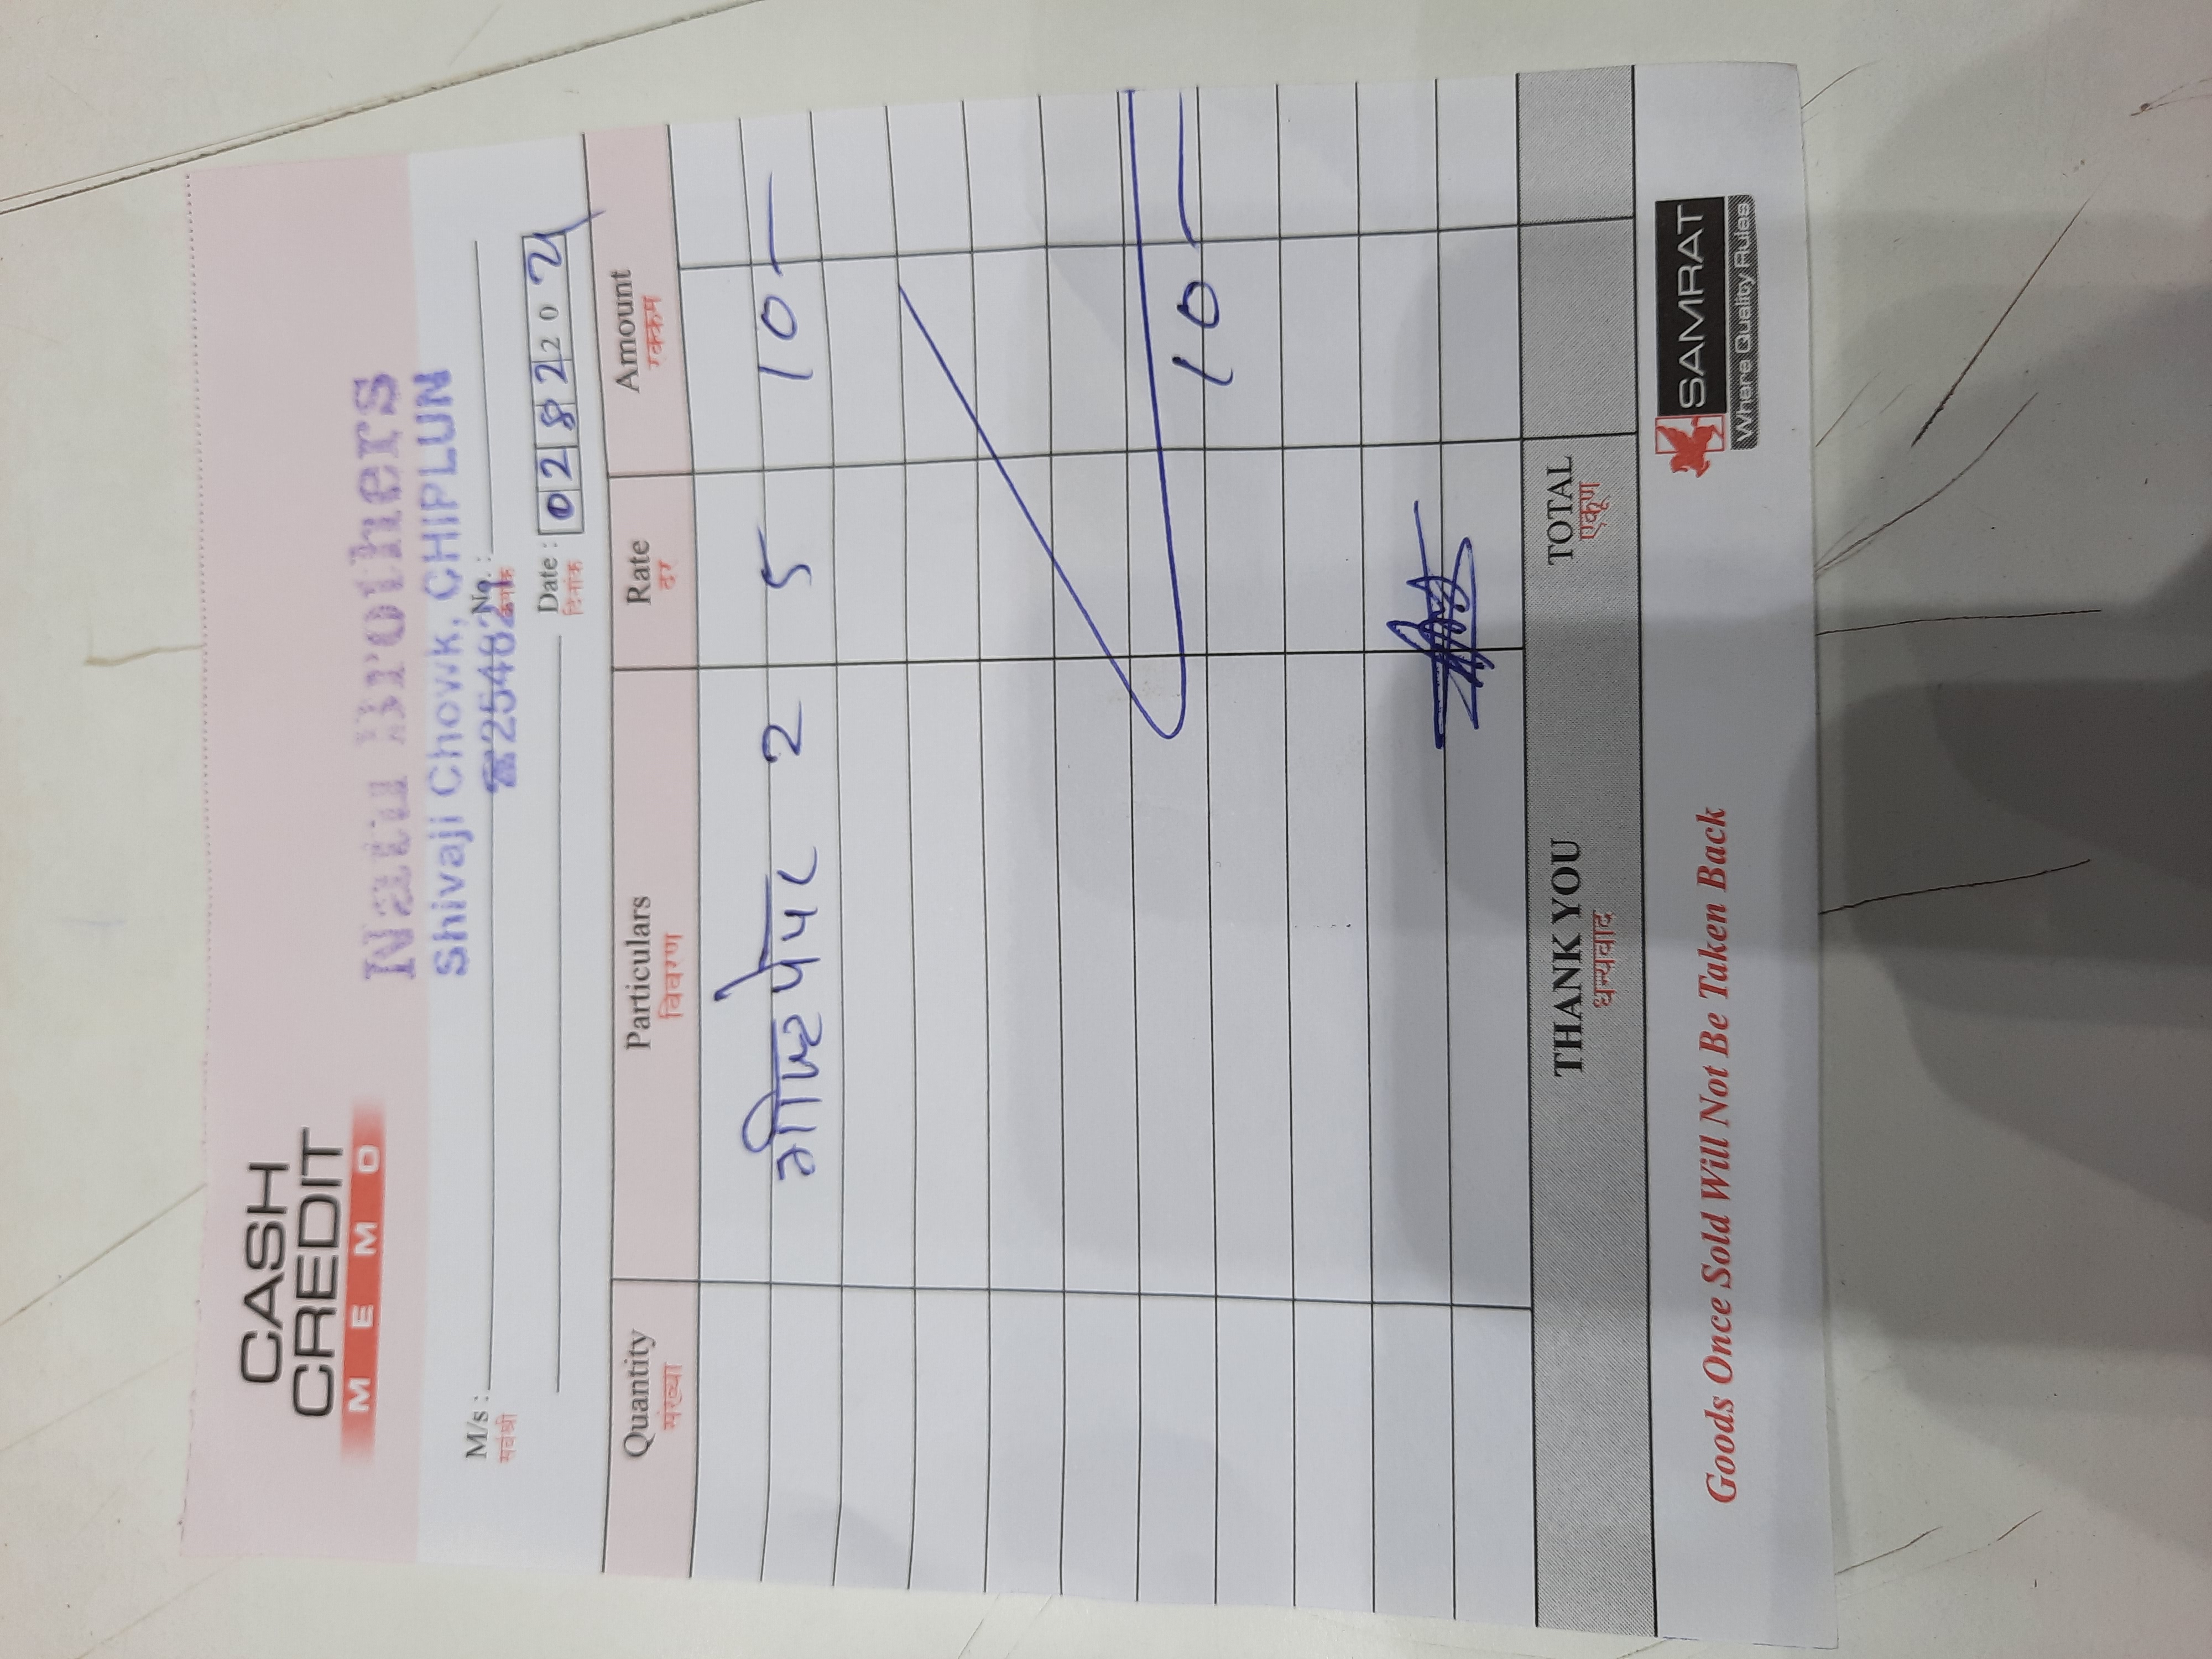 CASH
CREDIT
MEMO
Natu Brothers
Shivaji Chowk, CHIPLUN
☎254821
M/s :
सर्वश्री
No. :
क्रमांक
Date : 0 2 8 2 2 0
दिनांक
Quantity Particulars Rate Amount
संख्या विवरण दर रक्कम
गीफ्टपेपर 2 5 10 —
10 —
THANK YOU TOTAL
धन्यवाद एकूण
Goods Once Sold Will Not Be Taken Back
SAMRAT
Where Quality Rules